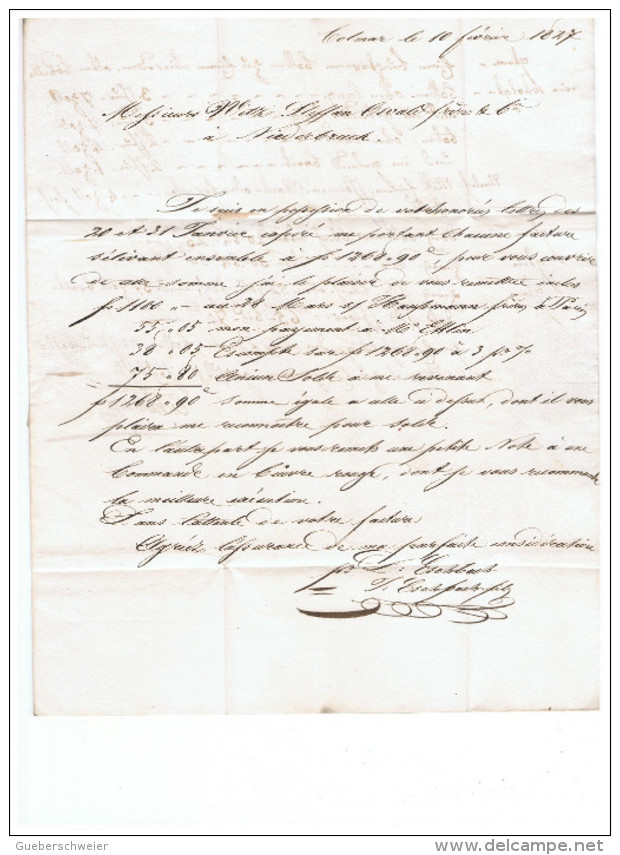 Colmar le 10 février 1827
Messieurs Witz, Steffan Oswald frères & Cie
à Niederbruck
Je suis en possession de votre honorée lettre des
20 et 31 Janvier me portant chacune facture
s'élevant ensemble à fs 1268.90c pour vous couvrir
de cette somme j'ai le plaisir de vous remettre inclus
fs 1100 „ - au 20 Mars s/ Haussmann frères à Paris
55 „ 05 mon payement à Mr Ettlin
38 „ 05 Escompte sur fs 1268.90c à 3 p %
75 „ 80 Solde à me revenant
fs 1268 „ 90c somme égale a celle ci dessus, dont il vous
plaira me reconnoitre pour solde.
En l'autre part je vous remets une petite Note à une
Commande en Cuivre rouge, dont je vous recommande
la meilleure exécution.
Dans l'attente de votre facture
Agréez l'assurance de ma parfaite considération
Gueberschweier
www.delcampe.net